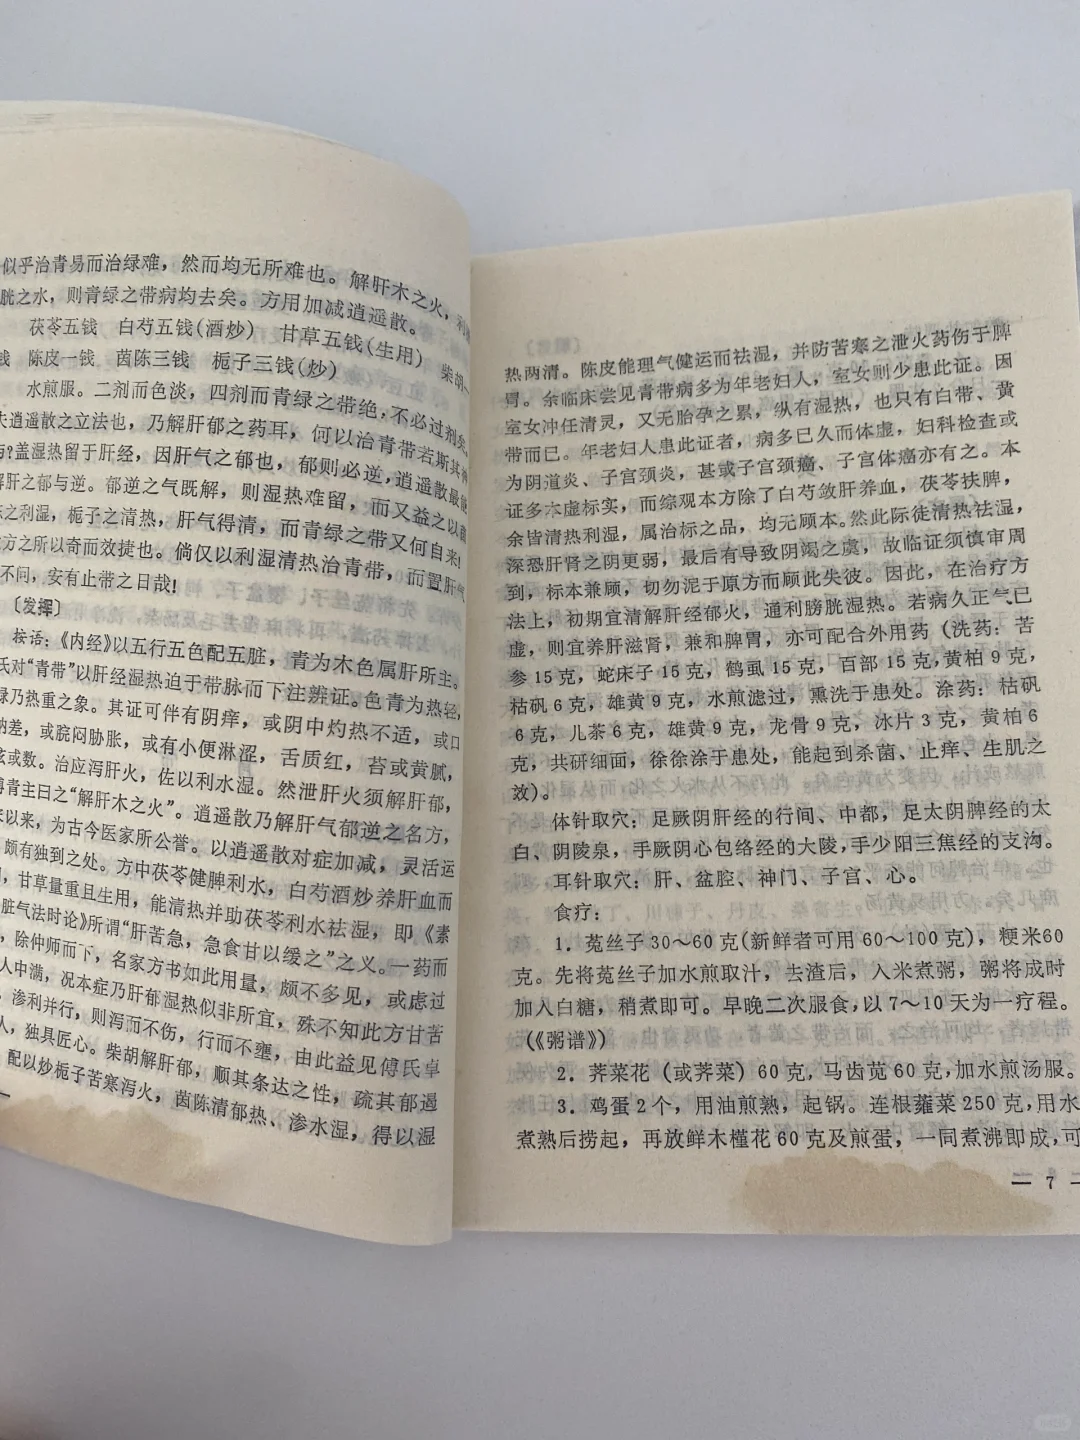 似乎治青易而治绿难，然而均无所难也。解肝木之火，利
胱之水，则青绿之带病均去矣。方用加减逍遥散。
茯苓五钱 白芍五钱(酒炒) 甘草五钱(生用) 柴胡一
钱 陈皮一钱 茵陈三钱 栀子三钱(炒)
水煎服。二剂而色淡，四剂而青绿之带绝，不必过剂矣。
夫逍遥散之立法也，乃解肝郁之药耳，何以治青带若斯其神
与?盖湿热留于肝经，因肝气之郁也，郁则必逆，逍遥散最能
解肝之郁与逆。郁逆之气既解，则湿热难留，而又益之以茵
陈之利湿，栀子之清热，肝气得清，而青绿之带又何自来!
方之所以奇而效捷也。倘仅以利湿清热治青带，而置肝气
不问，安有止带之日哉!
〔发挥〕
按语：《内经》以五行五色配五脏，青为木色属肝所主。
氏对“青带”以肝经湿热迫于带脉而下注辨证。色青为热轻，
绿乃热重之象。其证可伴有阴痒，或阴中灼热不适，或口
纳差，或脘闷胁胀，或有小便淋涩，舌质红，苔或黄腻，
弦或数。治应泻肝火，佐以利水湿。然泄肝火须解肝郁，
傅青主曰之“解肝木之火”。逍遥散乃解肝气郁逆之名方，
来以来，为古今医家所公誉。以逍遥散对症加减，灵活运
，颇有独到之处。方中茯苓健脾利水，白芍酒炒养肝血而
，甘草量重且生用，能清热并助茯苓利水祛湿，即《素
脏气法时论》所谓“肝苦急，急食甘以缓之”之义。一药而
，除仲师而下，名家方书如此用量，颇不多见，或虑过
人中满，况本症乃肝郁湿热似非所宜，殊不知此方甘苦
，渗利并行，则泻而不伤，行而不壅，由此益见傅氏卓
人，独具匠心。柴胡解肝郁，顺其条达之性，疏其郁遏
，配以炒栀子苦寒泻火，茵陈清郁热、渗水湿，得以湿
热两清。陈皮能理气健运而祛湿，并防苦寒之泄火药伤于脾
胃。余临床尝见青带病多为年老妇人，室女则少患此证。因
室女冲任清灵，又无胎孕之累，纵有湿热，也只有白带、黄
带而已。年老妇人患此证者，病多已久而体虚，妇科检查或
为阴道炎、子宫颈炎，甚或子宫颈癌、子宫体癌亦有之。本
证多本虚标实，而综观本方除了白芍敛肝养血，茯苓扶脾，
余皆清热利湿，属治标之品，均无顾本。然此际徒清热祛湿，
深恐肝肾之阴更弱，最后有导致阴竭之虞，故临证须慎审周
到，标本兼顾，切勿泥于原方而顾此失彼。因此，在治疗方
法上，初期宜清解肝经郁火，通利膀胱湿热。若病久正气已
虚，则宜养肝滋肾，兼和脾胃，亦可配合外用药（洗药：苦
参15克，蛇床子15克，鹤虱15克，百部15克，黄柏9克，
枯矾6克，雄黄9克，水煎滤过，熏洗于患处。涂药：枯矾
6克，儿茶6克，雄黄9克，龙骨9克，冰片3克，黄柏6
克，共研细面，徐徐涂于患处，能起到杀菌、止痒、生肌之
效)。
体针取穴：足厥阴肝经的行间、中都，足太阴脾经的太
白、阴陵泉，手厥阴心包络经的大陵，手少阳三焦经的支沟。
耳针取穴：肝、盆腔、神门、子宫、心。
食疗：
1．菟丝子30～60克(新鲜者可用60～100克)，粳米60
克。先将菟丝子加水煎取汁，去渣后，入米煮粥，粥将成时
加入白糖，稍煮即可。早晚二次服食，以7～10天为一疗程。
(《粥谱》)
2．荠菜花（或荠菜）60克，马齿苋60克，加水煎汤服。
3．鸡蛋2个，用油煎熟，起锅。连根蕹菜250克，用水
煮熟后捞起，再放鲜木槿花60克及煎蛋，一同煮沸即成，可
— 7 —